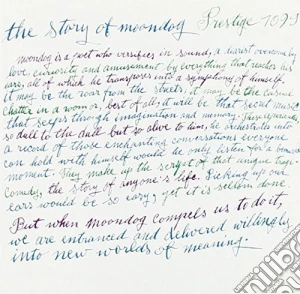 the story of moondog Prestige 7099
moondog is a poet who versifies in sound, a diarist overcome by
love curiosity and amusement by everything that reaches his
ears, all of which he transposes into a symphony of himself.
it may be the roar from the streets, it may be the casual
chatter in a room or, best of all, it will be that secret music
that seeps through imagination and memory. These experiences,
so dull to the dull but so alive to him, he orchestrates into
a record of those enchanting conversations everyone
can hold with himself would he only listen for a
moment. They make up the script of that unique tragi-
comedy, the story of anyone's life. Picking up our
ears would be so easy; yet it is seldom done.
But when moondog compels us to do it,
we are entranced and delivered willingly
into new worlds of meaning.